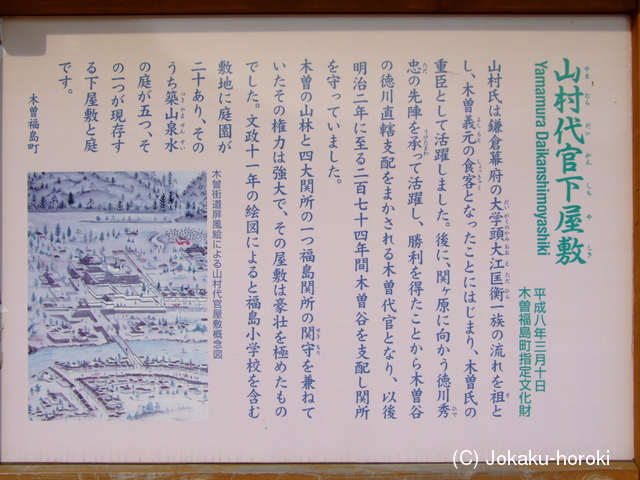 山村代官下屋敷
やまむらだいかんしもやしき
Yamamura Daikanshimoyashiki
平成八年三月十日
木曽福島町指定文化財
山村氏は鎌倉幕府の大学頭大江匡衡一族の流れを祖と
し、木曽義元の食客となったことにはじまり、木曽氏の
重臣として活躍しました。後に、関ヶ原に向かう徳川秀
忠の先陣を承って活躍し、勝利を得たことから木曽谷
の徳川直轄支配をまかされる木曽代官となり、以後
明治二年に至る二百七十四年間木曽谷を支配し関所
を守っていました。
木曽の山林と四大関所の一つ福島関所の関守を兼ねて
いたその権力は強大で、その屋敷は豪壮を極めたもの
でした。文政十一年の絵図によると福島小学校を含む
敷地に庭園が
二十あり、その
うち築山泉水
の庭が五つ、そ
の一つが現存す
る下屋敷と庭
です。
木曽福島町
木曽街道屏風絵による山村代官屋敷概念図
(C) Jokaku-horoki